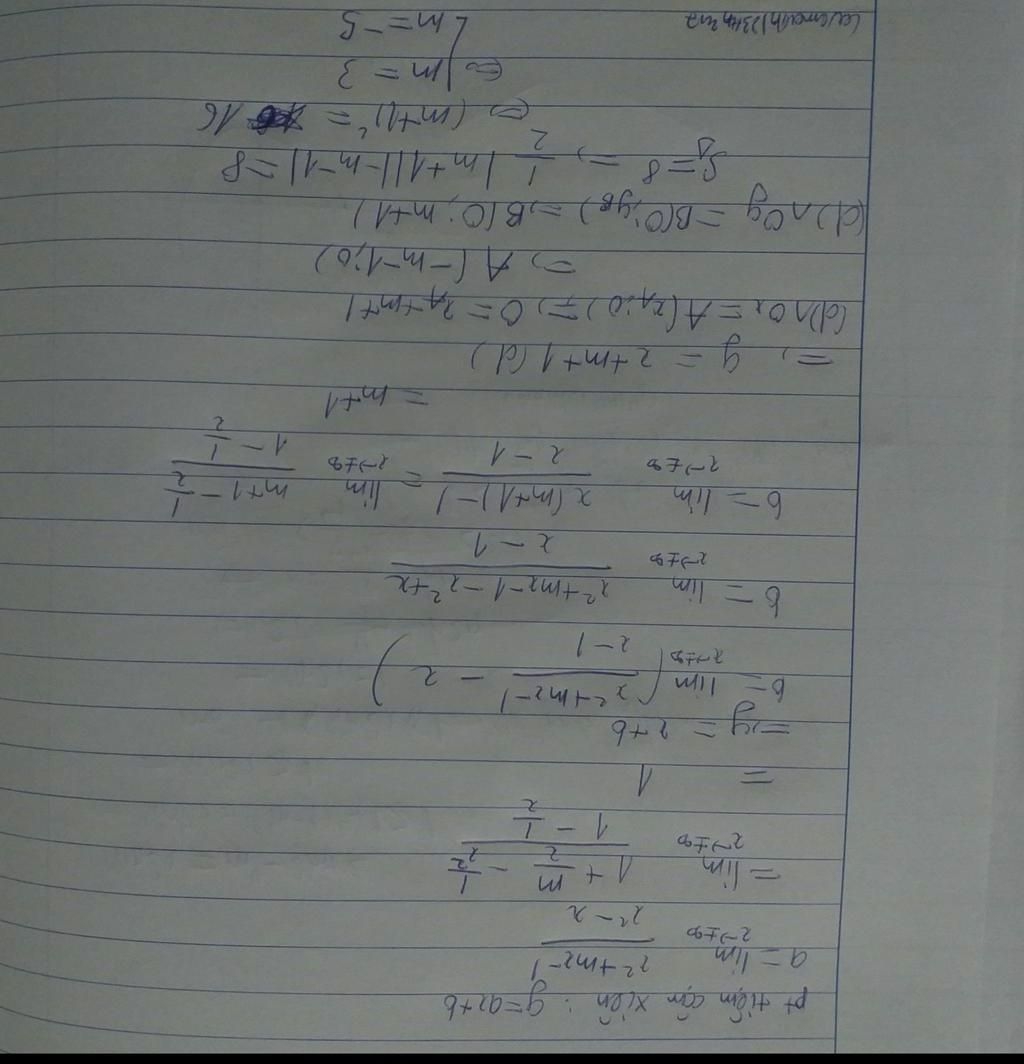 pt tiệm cận xiên : y=ax+b
a = lim x→±∞ (x²+mx-1)/(x²-x)
= lim x→±∞ (1 + m/x - 1/x²)/(1 - 1/x)
= 1
=> y = x+b
b = lim x→±∞ ( (x²+mx-1)/(x-1) - x )
b = lim x→±∞ (x²+mx-1-x²+x)/(x-1)
b = lim x→±∞ (x(m+1)-1)/(x-1) = lim x→±∞ (m+1-1/x)/(1-1/x)
= m+1
=> y = x+m+1 (d)
(d)∩Ox = A(xA;0) => 0 = xA+m+1
=> A(-m-1;0)
(d)∩Oy = B(0;yB) => B(0; m+1)
SΔ=8 => 1/2 |m+1||-m-1|=8
⇔ (m+1)² = 16
⇔ [ m = 3
m = -5